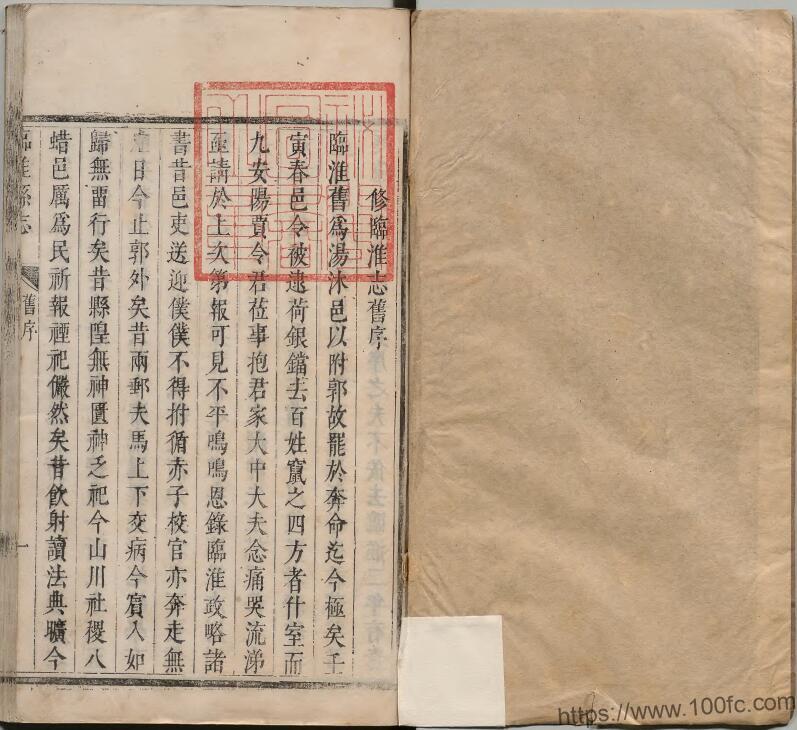 修臨淮志舊序
臨淮舊為湯沐邑以附郭故罷於奔命迄今極矣壬
寅春邑令被逮荷銀鐺去百姓竄之四方者什室而
九安陽賈令君莅事抱君家大中大夫念痛哭流涕
亟請於上次第報可見不平鳴鳴恩錄臨淮政略諸
書昔邑吏送迎僕僕不得拊循赤子校官亦奔走無
日今止郭外矣昔兩郵夫馬上下交病今賓入如
歸無留行矣昔縣隍無神匱神乏祀今山川社稷八
蜡邑厲為民祈報禋祀儼然矣昔飲射讀法典曠今
臨淮縣志
舊序
一
https://www.100fc.com